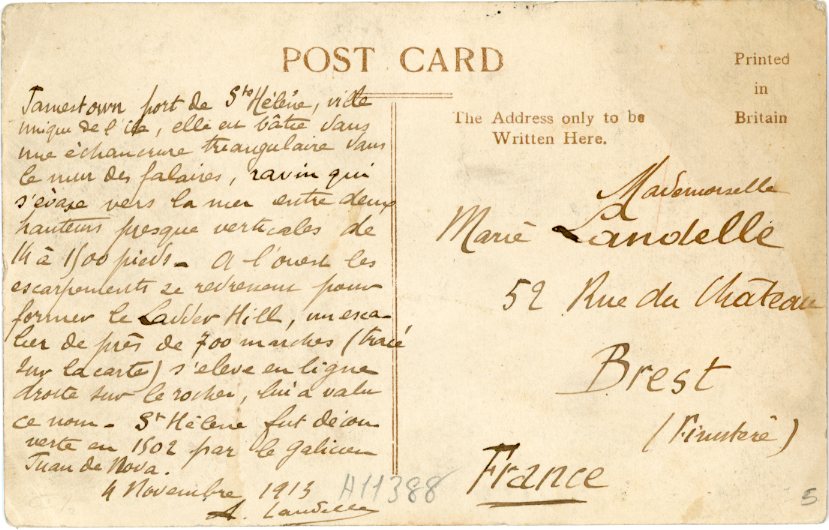 POST CARD
Printed
in
Britain
The Address only to be
Written Here.
Jamestown port de Ste Hélène, ville
unique de l'île, elle est bâtie dans
une échancrure triangulaire dans
le mur des falaises, ravin qui
s'évase vers la mer entre deux
hauteurs presque verticales de
14 à 1500 pieds - A l'ouest les
escarpements se redressent pour
former le Ladder Hill, un esca-
lier de près de 700 marches (tracé
sur la carte) s'élève en ligne
droite sur le rocher, lui a valu
ce nom - Ste Hélène fut décou-
verte en 1502 par le Galicien
Juan de Nova.
4 Novembre 1913
A. Landelle
Mademoiselle
Marie Landelle
52 Rue du Château
Brest
(Finistère)
France
A11388
5